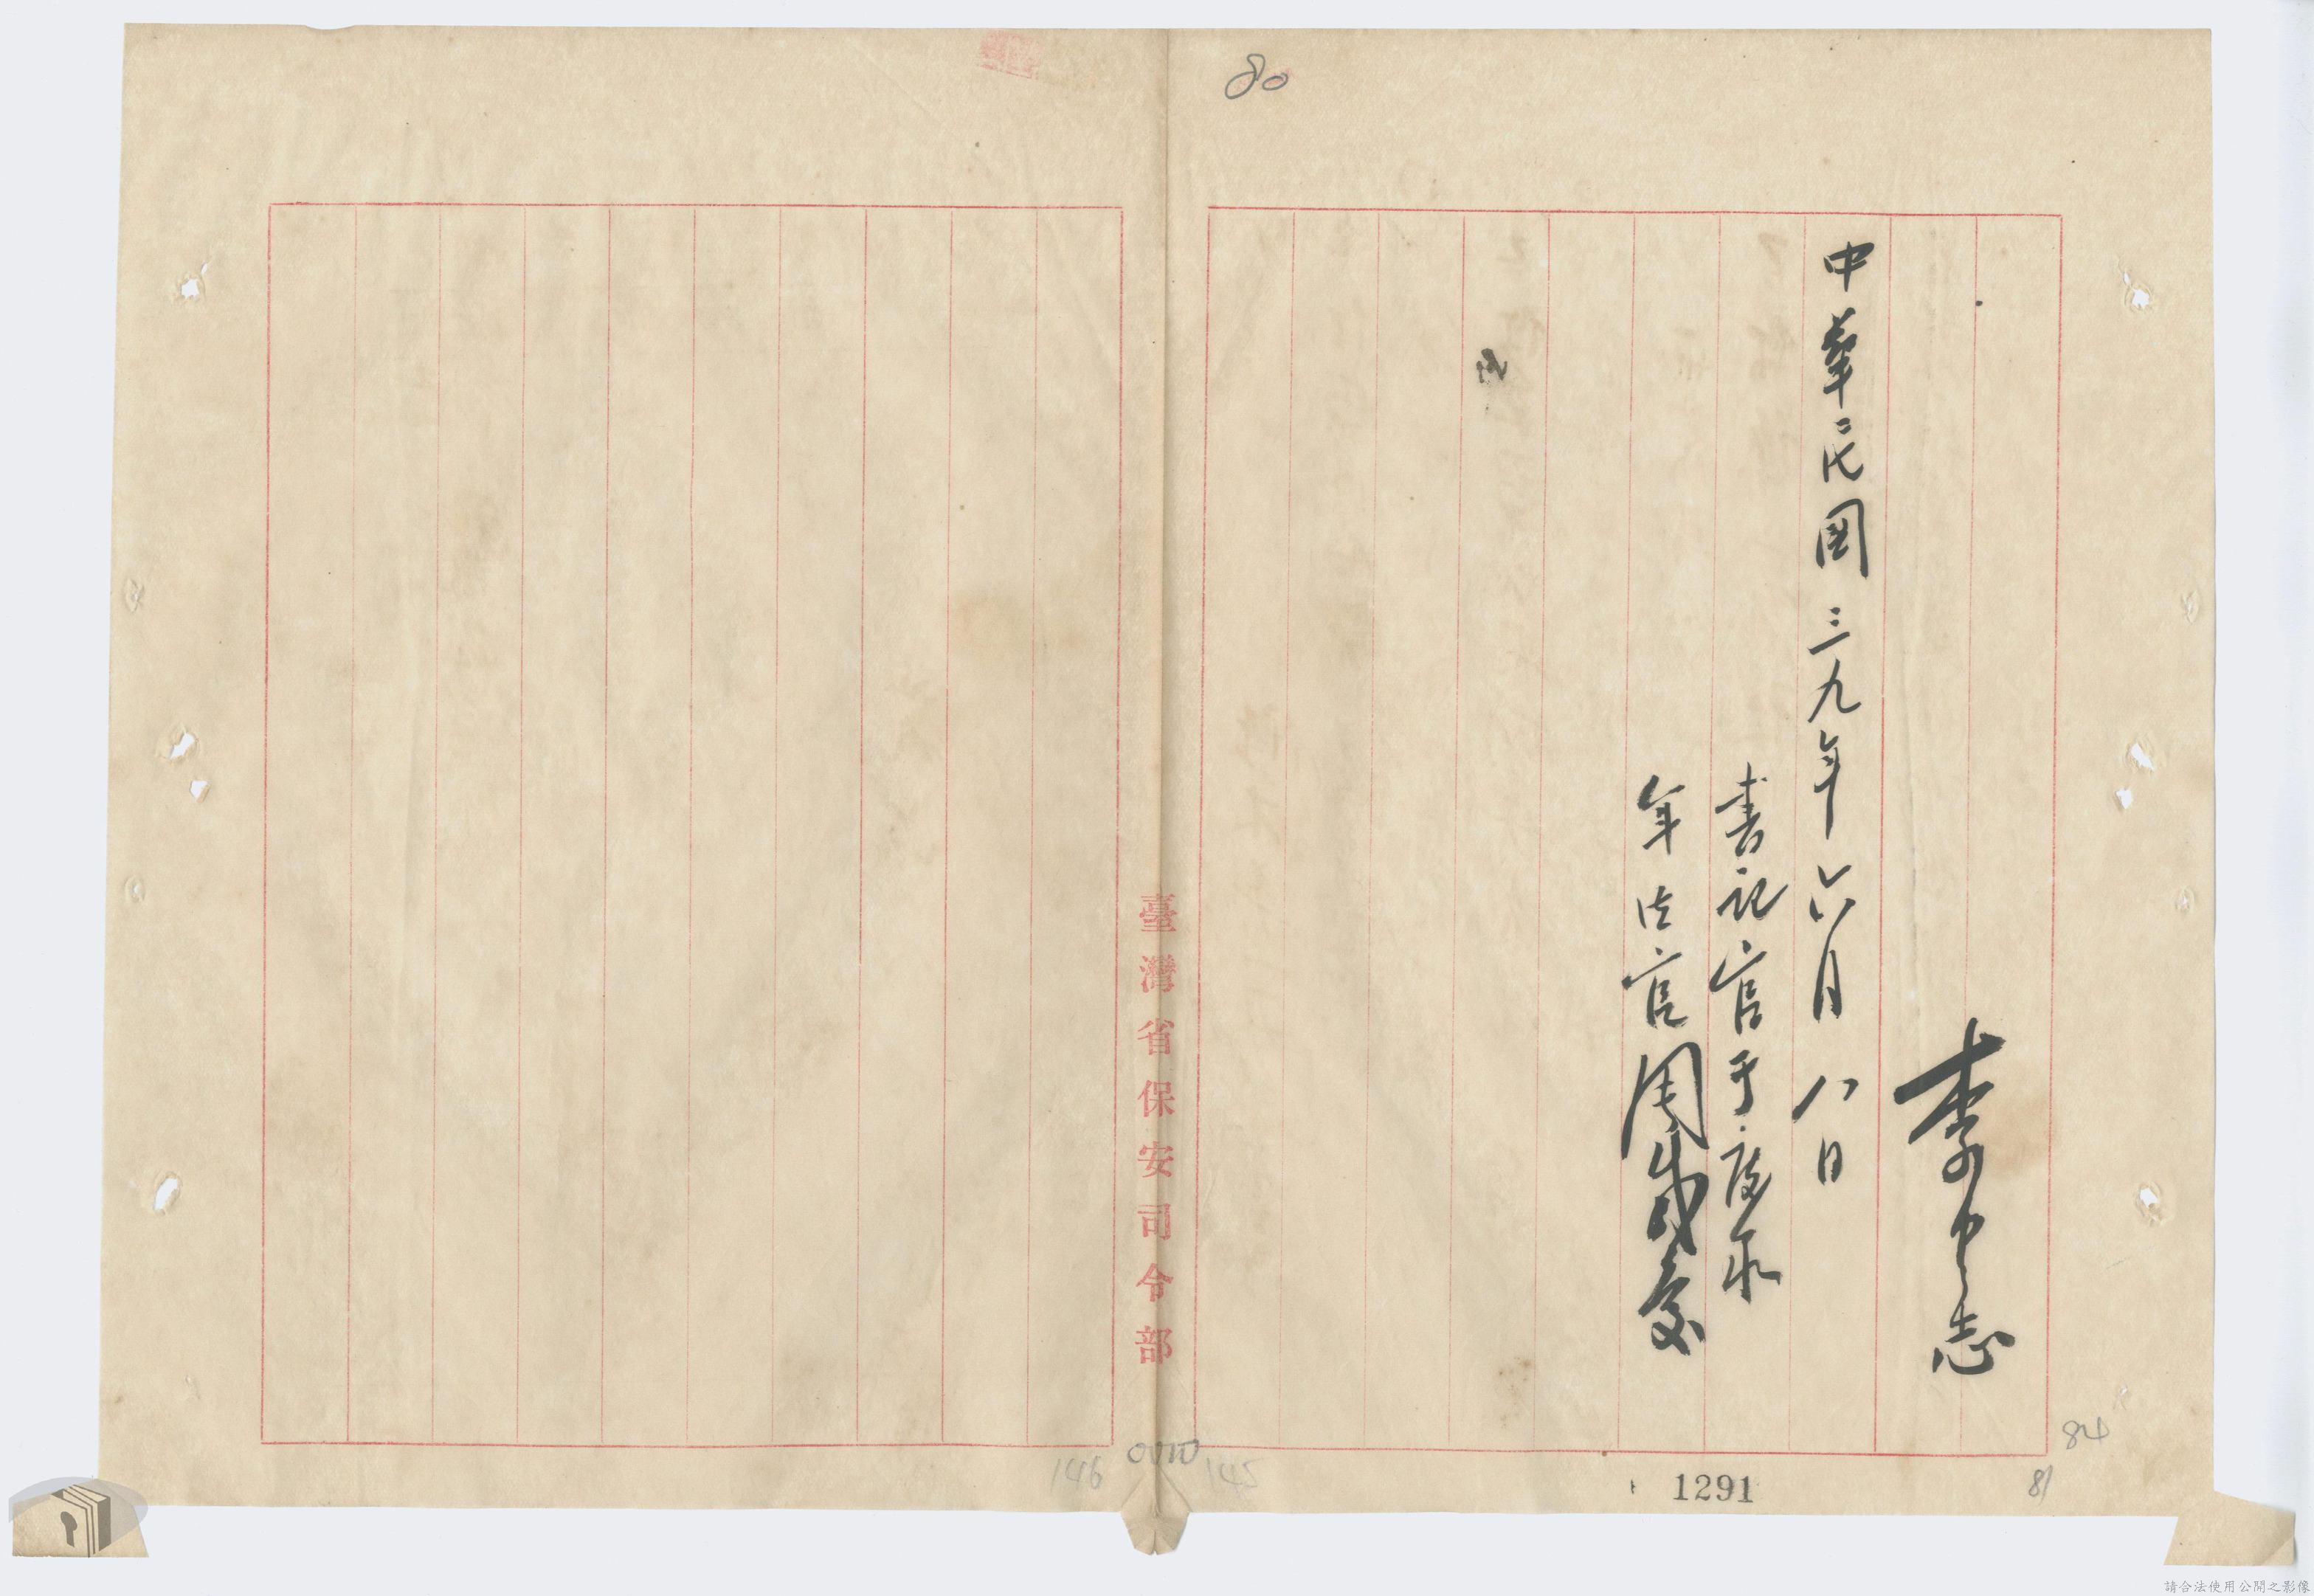 80
李中志
中華民國三九年六月八日
書記官于
軍法官周咸慶
臺灣省保安司令部
146
145
1291
84
81
請合法使用公開之影像